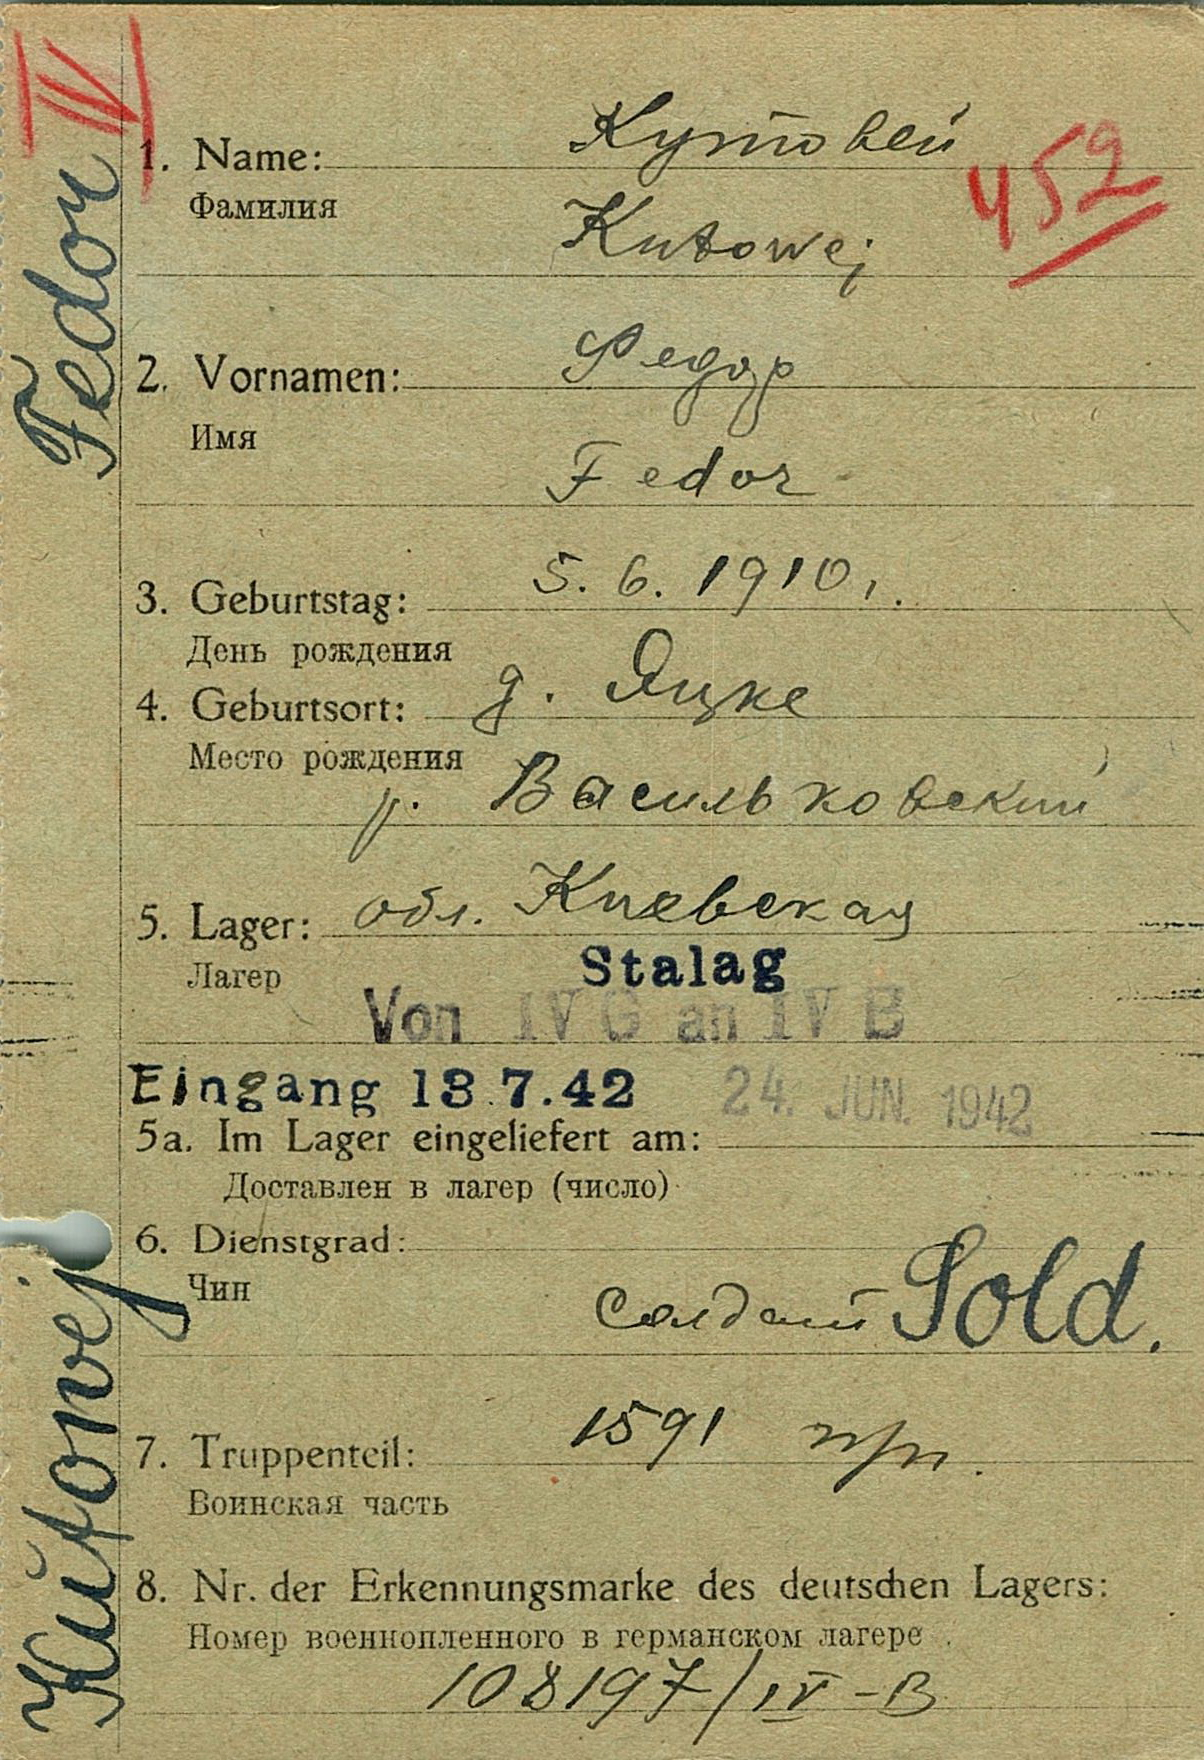 IV
Fedor
Kutowej
1. Name: Кутовей
Фамилия
452
Kutowej
2. Vornamen: Федор
Имя
Fedor
3. Geburtstag: 5. 6. 1910.
День рождения
4. Geburtsort: д. Яцке
Место рождения
р. Васильковский
5. Lager: обл. Киевская
Лагер
Stalag
Von IV G an IV B
Eingang 13.7.42 24. JUN. 1942
5a. Im Lager eingeliefert am:
Доставлен в лагер (число)
6. Dienstgrad:
Чин
солдат Sold.
7. Truppenteil: 1591
Воинская часть
8. Nr. der Erkennungsmarke des deutschen Lagers:
Номер военнопленного в германском лагере
108197/IV-B